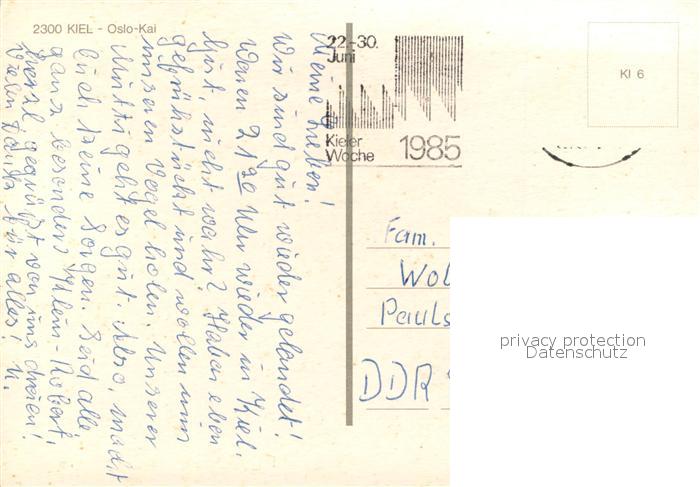 2300 KIEL - Oslo-Kai
Meine Lieben!
Wir sind gut wieder gelandet!
Waren 21 20 Uhr wieder in Kiel.
Gut, nicht wahr? Haben eben
gefrühstückt und wollen nun
unseren Vogel holen. Unserer
Mutti geht es gut. Also, macht
Euch keine Sorgen. Seid alle
ganz besonders Klein-Robert,
herzl. gegrüßt von uns dreien!
Vielen Dank für alles! U.
22.-30.
Juni
Kieler
Woche 1985
KI 6
Fam.
Wol
Pauls
DDR
privacy protection
Datenschutz